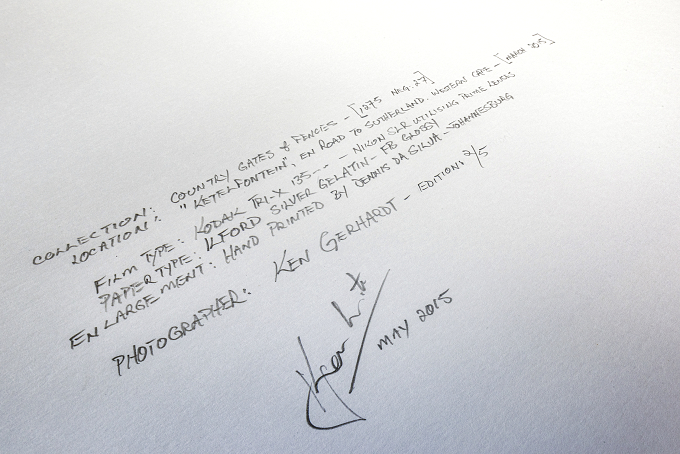 COLLECTION: COUNTRY GATES & FENCES - [1275 NEG. 27]
LOCATION: "KETELFONTEIN", EN ROAD TO SUTHERLAND. WESTERN CAPE - [MARCH 2015]
FILM TYPE: KODAK TRI-X 135 - - - NIKON SLR UTILISING PRIME LENSES
PAPER TYPE: ILFORD SILVER GELATIN - FB GLOSSY
ENLARGEMENT: HAND PRINTED BY DENNIS DA SILVA - JOHANNESBURG
PHOTOGRAPHER: KEN GERHARDT - EDITION: 2/5
MAY 2015